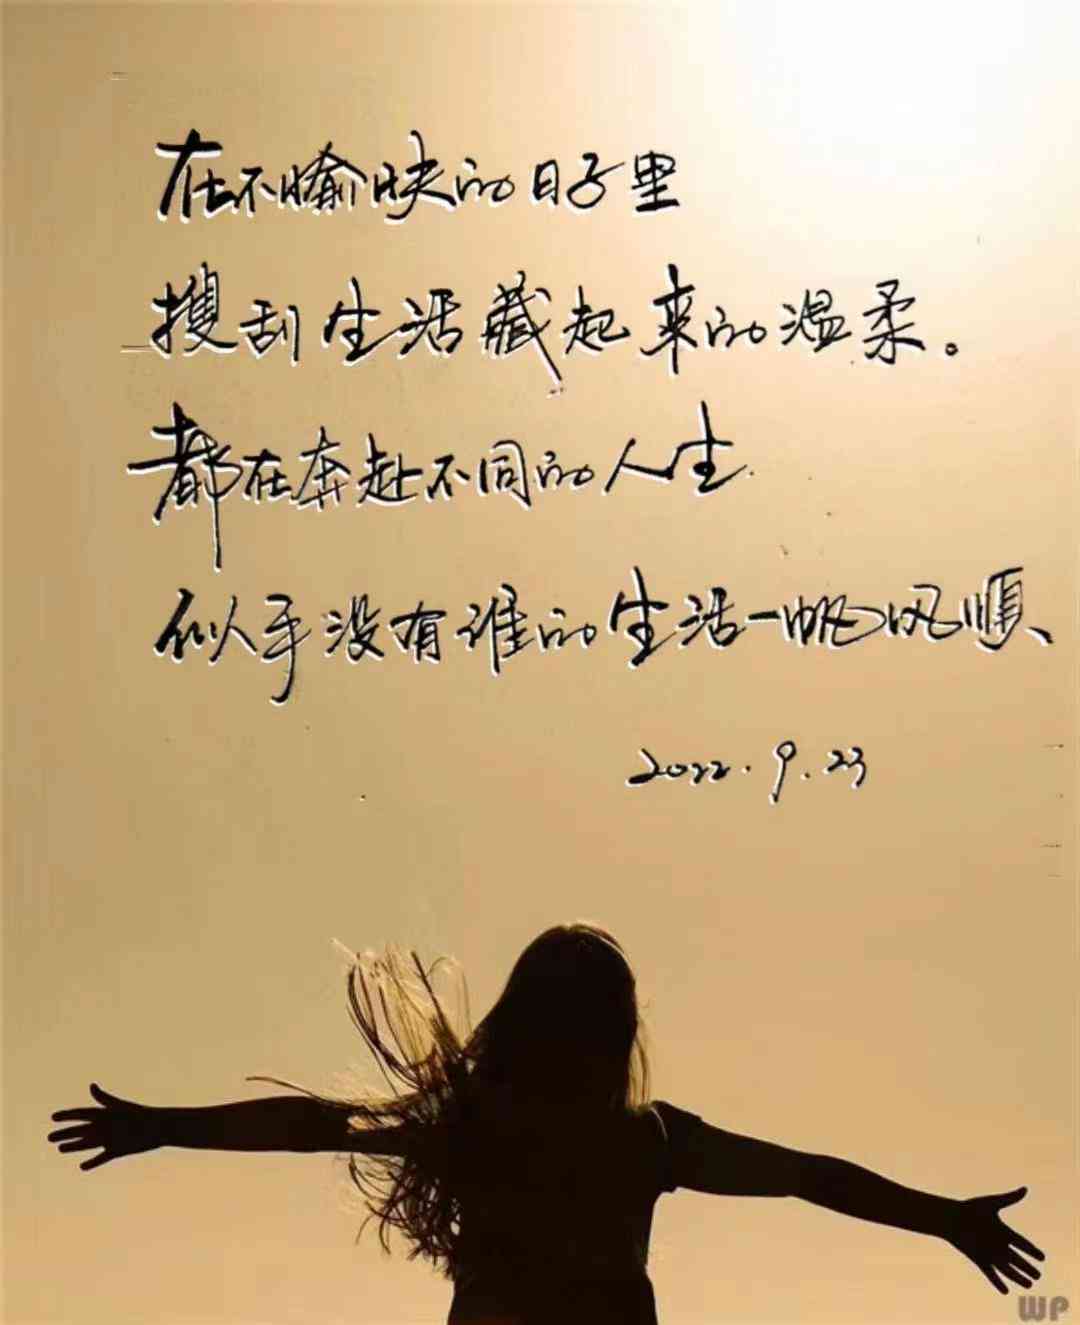 在不愉快的日子里
搜刮生活藏起来的温柔。
都在奔赴不同的人生
似乎没有谁的生活一帆风顺、
2022.9.23
WP